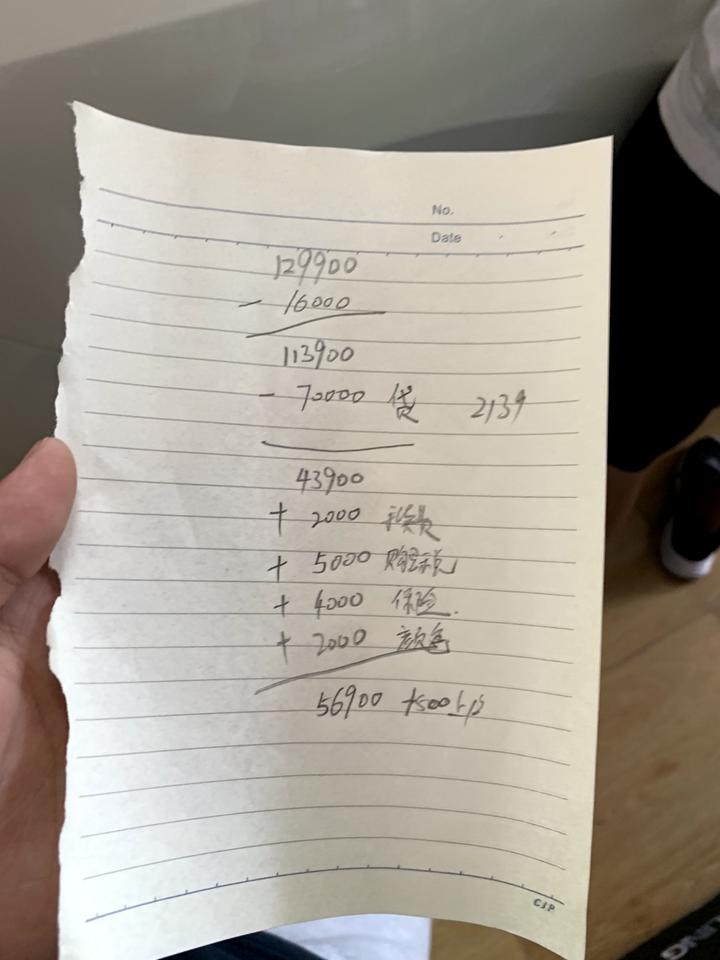 No.
Date
129900
- 16000
113900
- 70000 贷 2139
43900
+ 2000
+ 5000 购置税
+ 4000 保险.
+ 2000 颜色
56900 +500上户
C.J.P